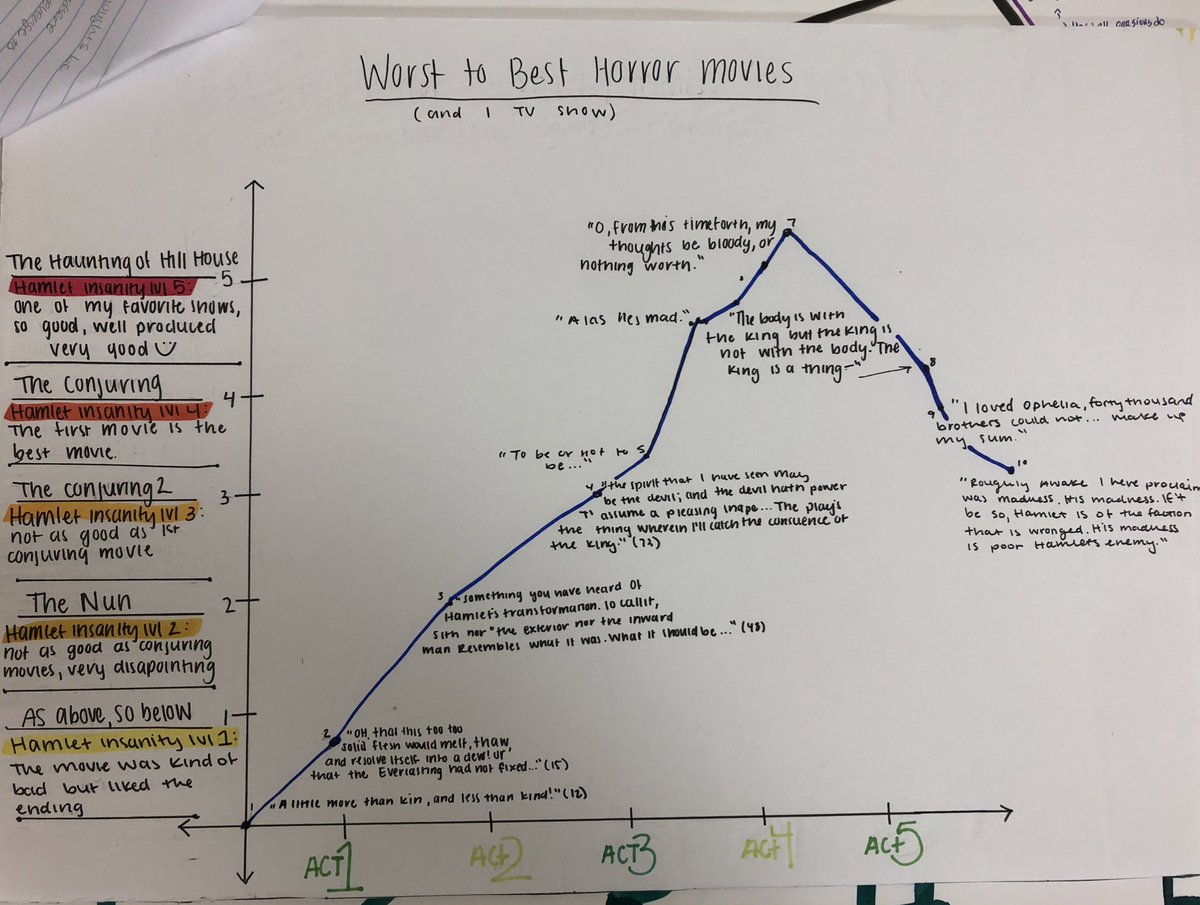 Worst to Best Horror movies
(and 1 TV show)
The Haunting of Hill House
Hamlet insanity lvl 5:
one of my favorite shows,
so good, well produced
very good
The Conjuring
Hamlet insanity lvl 4:
The first movie is the
best movie.
The conjuring 2
Hamlet insanity lvl 3:
not as good as 1st
conjuring movie
The Nun
Hamlet insanity lvl 2:
not as good as conjuring
movies, very disapointing
As above, so below
Hamlet insanity lvl 1:
The movie was kind of
bad but liked the
ending
5
4
3
2
1
7
"O, from this time forth, my
thoughts be bloody, or
nothing worth."
"Alas he's mad."
"The body is with
the king but the king is
not with the body. The
King is a thing-"
8
9
"I loved Ophelia, forty thousand
brothers could not... make up
my sum."
10
"Roughly Awake I here proclaim
was madness. His madness. If't
be so, Hamlet is of the faction
that is wronged. His madness
is poor Hamlets enemy."
"To be or not to
be..."
5
4
"the spirit that I have seen may
be the devil; and the devil hath power
T' assume a pleasing shape... The play's
the thing wherein I'll catch the
the king." (73)
3
"something you have heard of
Hamlet's transformation. so call it,
Sith nor "the exterior nor the inward
man Resembles what it was. What it should be..." (48)
2
"OH, that this too too
solid flesh would melt, thaw,
and resolve itself into a dew! or
that the Everlasting had not fixed..." (15)
1
"A little more than kin, and less than kind!" (12)
ACT 1
ACT 2
ACT 3
ACT 4
ACT 5